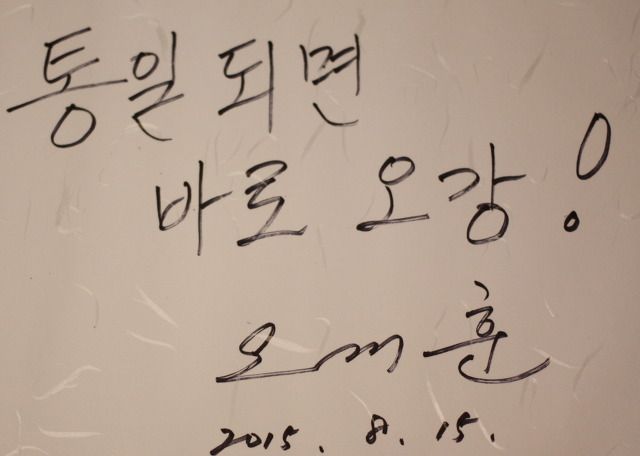 통일 되면
바로 오강!
오세훈
2015. 8. 15.